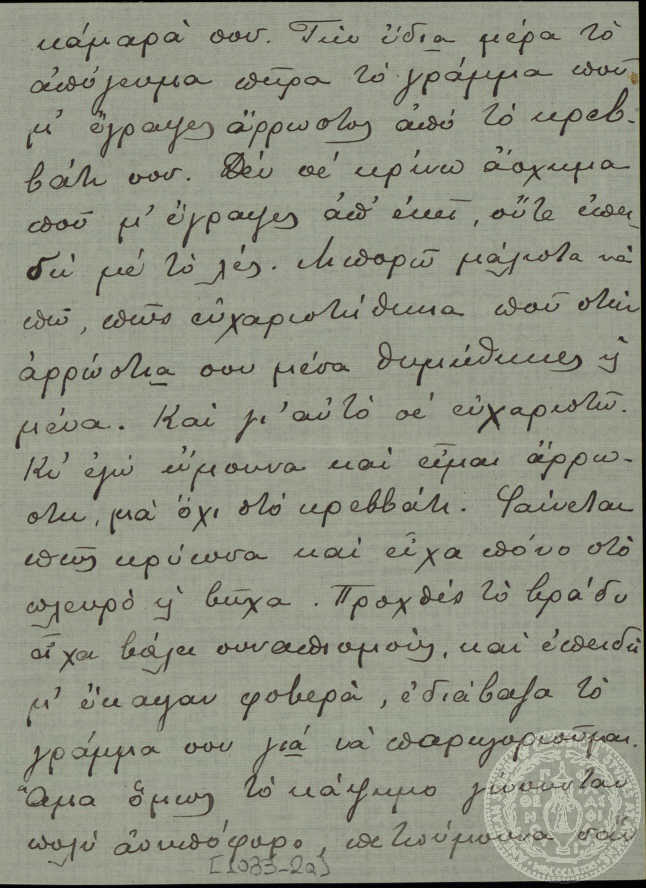 κάμαρά σου. Τὴν ἴδια μέρα τὸ
ἀπόγευμα πῆρα τὸ γράμμα ποῦ
μ' ἔγραψες ἄρρωστος ἀπὸ τὸ κρεβ-
βάτι σου. Δὲν σὲ κρίνω ἄσχημα
ποῦ μ' ἔγραψες ἀπ' ἐκεῖ, οὔτε ἐπει-
δὴ μὲ τὸ λές. Μπορῶ μάλιστα νὰ
πῶ, πῶς εὐχαριστήθηκα ποῦ στὴν
ἀρρώστια σου μέσα θυμήθηκες κ̓
μένα. Καὶ γι' αὐτὸ σὲ εὐχαριστῶ.
Κι' ἐγὼ ἤμουνα καὶ εἶμαι ἄρρω-
στη, μὰ ὄχι στὸ κρεββάτι. Φαίνεται
πῶς κρύωσα καὶ εἶχα πόνο στὸ
πλευρὸ κ̓ βῆχα. Προχθὲς τὸ βράδυ
εἶχα βάλει συναπισμοὺς, καὶ ἐπειδὴ
μ' ἔκαψαν φοβερὰ, ἐδιάβαζα τὸ
γράμμα σου γιὰ νὰ παρηγοριοῦμαι.
Ἅμα ὅμως τὸ κάψιμο γινουνταν
πολὺ ἀνυπόφορο, πετιούμουνα σὰν
[1033-2a]